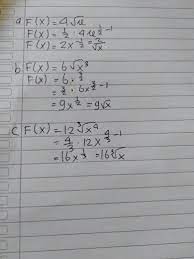 a F(x) = 4√x
F(x) = 1/2 · 4x^(1/2 - 1)
F(x) = 2x^(-1/2) = 2/√x
b F(x) = 6√x³
F(x) = 6 · 3/2
= 3/2 · 6x^(3/2 - 1)
= 9x^(1/2) = 9√x
C F(x) = 12 ³√x⁴
= 4/3 · 12x^(4/3 - 1)
= 16x^(1/3) = 16 ³√x